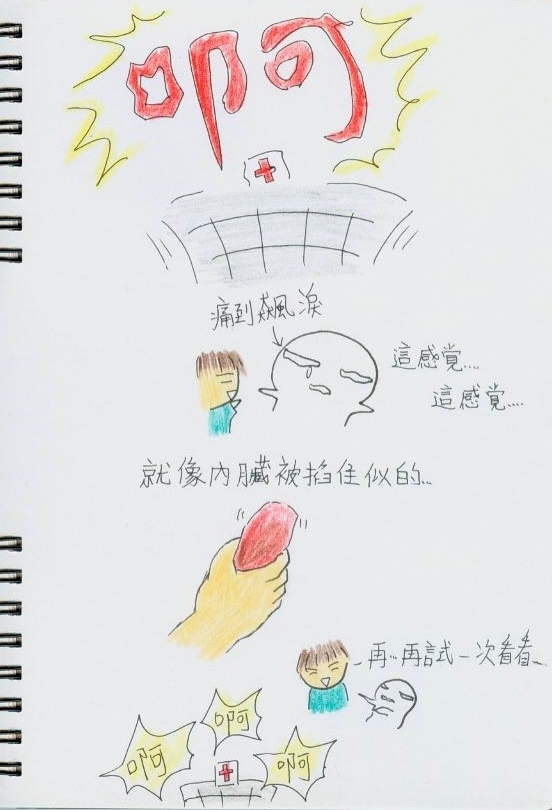 啊
痛到飆淚
這感覚....
這感覚....
就像內臟被掐住似的..
再..再試一次看看..
啊
啊
啊